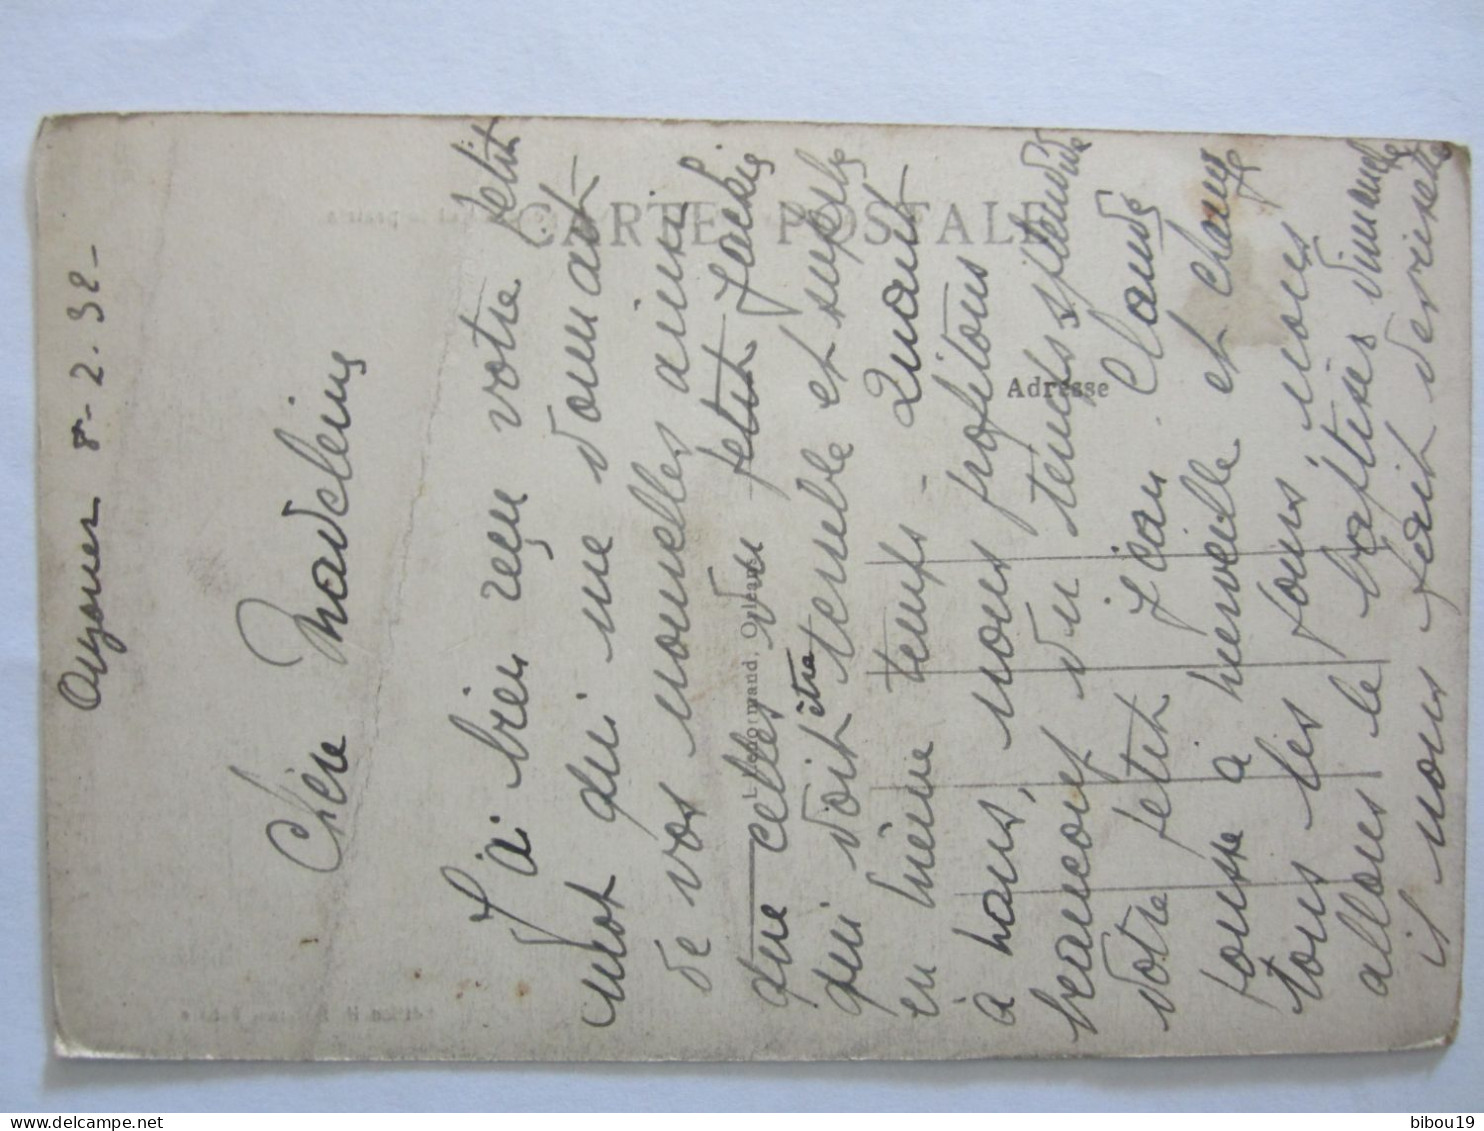 8-2.38-
Chère Madeleine
J'ai bien reçu votre petit
mot qui me donnait
de vos nouvelles ainsi
que celles du petit Jackie
qui doit être terrible et superbe
en même temps. Quant
à nous, nous profitons
beaucoup du temps splendide
votre petit Jean Claude
pousse à merveille et change
tous les jours nous
allons le baptiser dimanche
il nous fait des risettes
CARTE POSTALE
Adresse
L. Lenormand, Orléans
bibou19